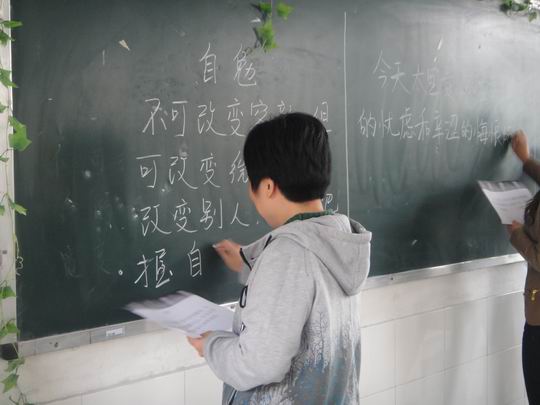 自勉
不可改变容 但
可改变
改变别人
。握自
今天太
的忧虑和辛涩的悔恨